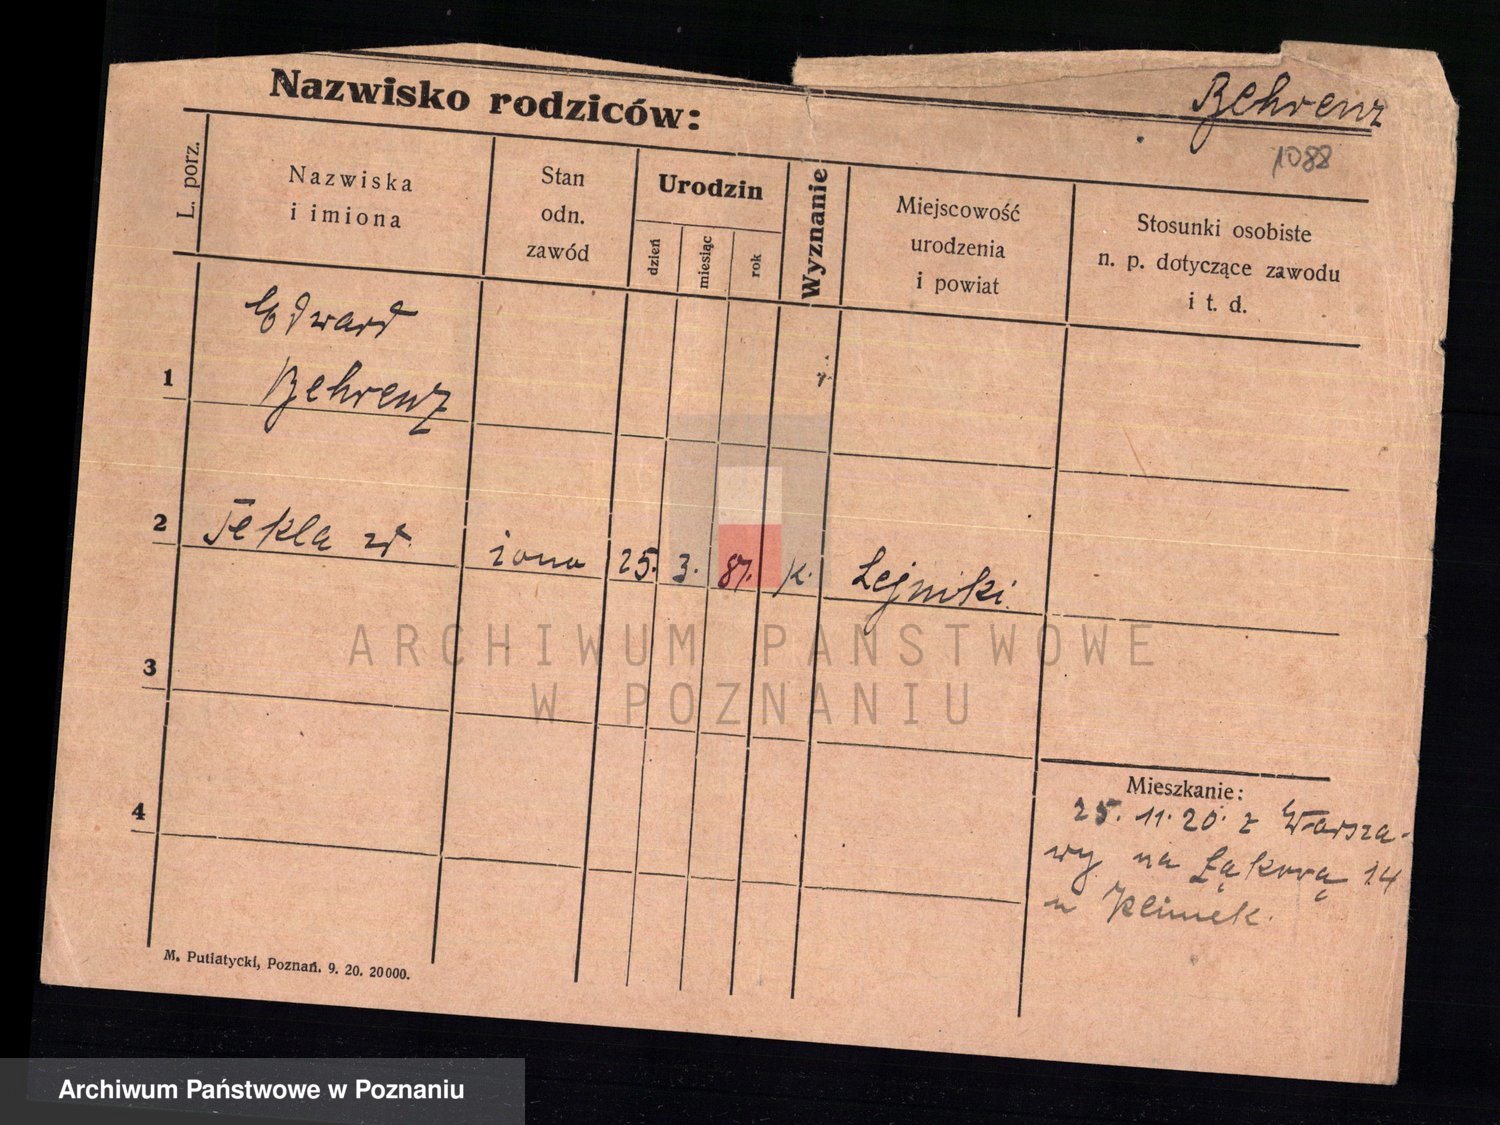 Nazwisko rodziców:
Behrenz
1088
L. porz.
Nazwiska
i imiona
Stan
odn.
zawód
Urodzin
dzień
miesiąc
rok
Wyznanie
Miejscowość
urodzenia
i powiat
Stosunki osobiste
n. p. dotyczące zawodu
i t. d.
1
Edward
Behrenz
2
Tekla
żona
25.
3.
87.
k.
Lejniki
3
4
Mieszkanie:
25. 11. 20. z Warsza-
wy na Łąkową 14
u Klimek.
M. Putiatycki, Poznań. 9. 20. 20000.
ARCHIWUM PAŃSTWOWE
W POZNANIU
Archiwum Państwowe w Poznaniu